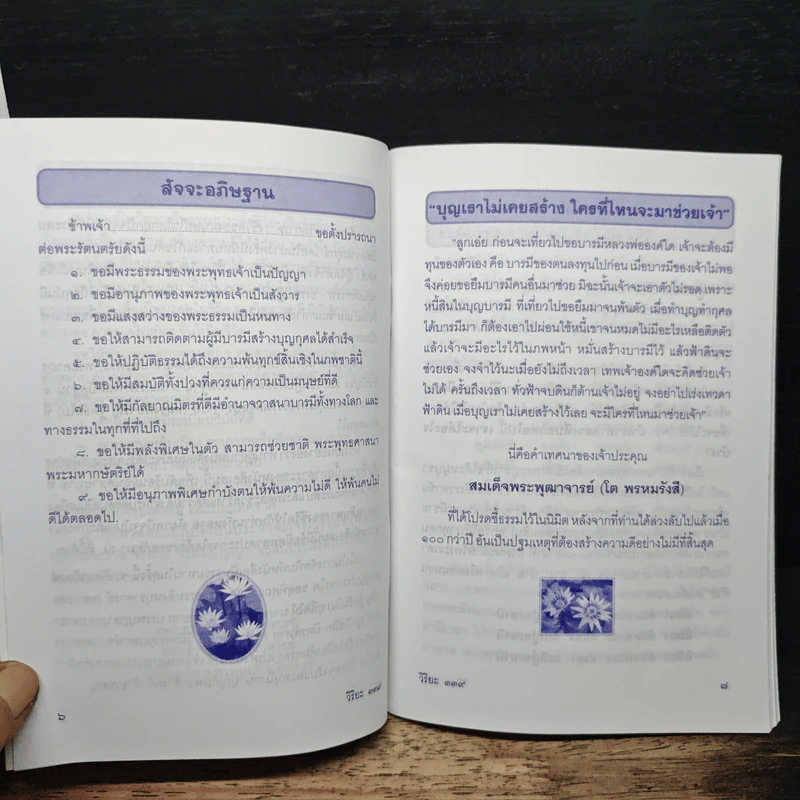 สัจจะอภิษฐาน
ข้าพเจ้า ขอตั้งปรารถนา
ต่อพระรัตนตรัยดังนี้
๑. ขอมีพระธรรมของพระพุทธเจ้าเป็นปัญญา
๒. ขอมีอานุภาพของพระพุทธเจ้าเป็นสังวาร
๓. ขอมีแสงสว่างของพระธรรมเป็นหนทาง
๔. ขอให้สามารถติดตามผู้มีบารมีสร้างบุญกุศลได้สำเร็จ
๕. ขอให้ปฏิบัติธรรมได้ถึงความพ้นทุกข์สิ้นเชิงในภพชาตินี้
๖. ขอให้มีสมบัติทั้งปวงที่ควรแก่ความเป็นมนุษย์ที่ดี
๗. ขอให้มีกัลยาณมิตรที่ดีมีอำนาจวาสนาบารมีทั้งทางโลก และ
ทางธรรมในทุกที่ที่ไปถึง
๘. ขอให้มีพลังพิเศษในตัว สามารถช่วยชาติ พระพุทธศาสนา
พระมหากษัตริย์ได้
๙. ขอให้มีอนุภาพพิเศษกำบังตนให้พ้นความไม่ดี ให้พ้นคนไม่
ดีได้ตลอดไป.
วิริยะ ๓๓๙
๖
"บุญเราไม่เคยสร้าง ใครที่ไหนจะมาช่วยเจ้า"
"ลูกเอ๋ย ก่อนจะเที่ยวไปขอบารมีหลวงพ่อองค์ใด เจ้าจะต้องมี
ทุนของตัวเอง คือ บารมีของตนลงทุนไปก่อน เมื่อบารมีของเจ้าไม่พอ
จึงค่อยขอยืมบารมีคนอื่นมาช่วย มิฉะนั้นเจ้าจะเอาตัวไม่รอด เพราะ
หนี้สินในบุญบารมี ที่เที่ยวไปขอยืมมาจนพ้นตัว เมื่อทำบุญทำกุศล
ได้บารมีมา ก็ต้องเอาไปผ่อนใช้หนี้เขาจนหมดไม่มีอะไรเหลือติดตัว
แล้วเจ้าจะมีอะไรไว้ในภพหน้า หมั่นสร้างบารมีไว้ แล้วฟ้าดินจะ
ช่วยเอง จงจำไว้นะเมื่อยังไม่ถึงเวลา เทพเจ้าองค์ใดจะคิดช่วยเจ้า
ไม่ได้ ครั้นถึงเวลา ทั่วฟ้าจบดินก็ต้านเจ้าไม่อยู่ จงอย่าไปเร่งเทวดา
ฟ้าดิน เมื่อบุญเราไม่เคยสร้างไว้เลย จะมีใครที่ไหนมาช่วยเจ้า"
นี่คือคำเทศนาของเจ้าประคุณ
สมเด็จพระพุฒาจารย์ (โต พรหมรังสี)
ที่ได้โปรดชี้ธรรมไว้ในนิมิต หลังจากที่ท่านได้ล่วงลับไปแล้วเมื่อ
๑๐๐ กว่าปี อันเป็นปฐมเหตุที่ต้องสร้างความดีอย่างไม่มีที่สิ้นสุด
วิริยะ ๓๓๙
๗